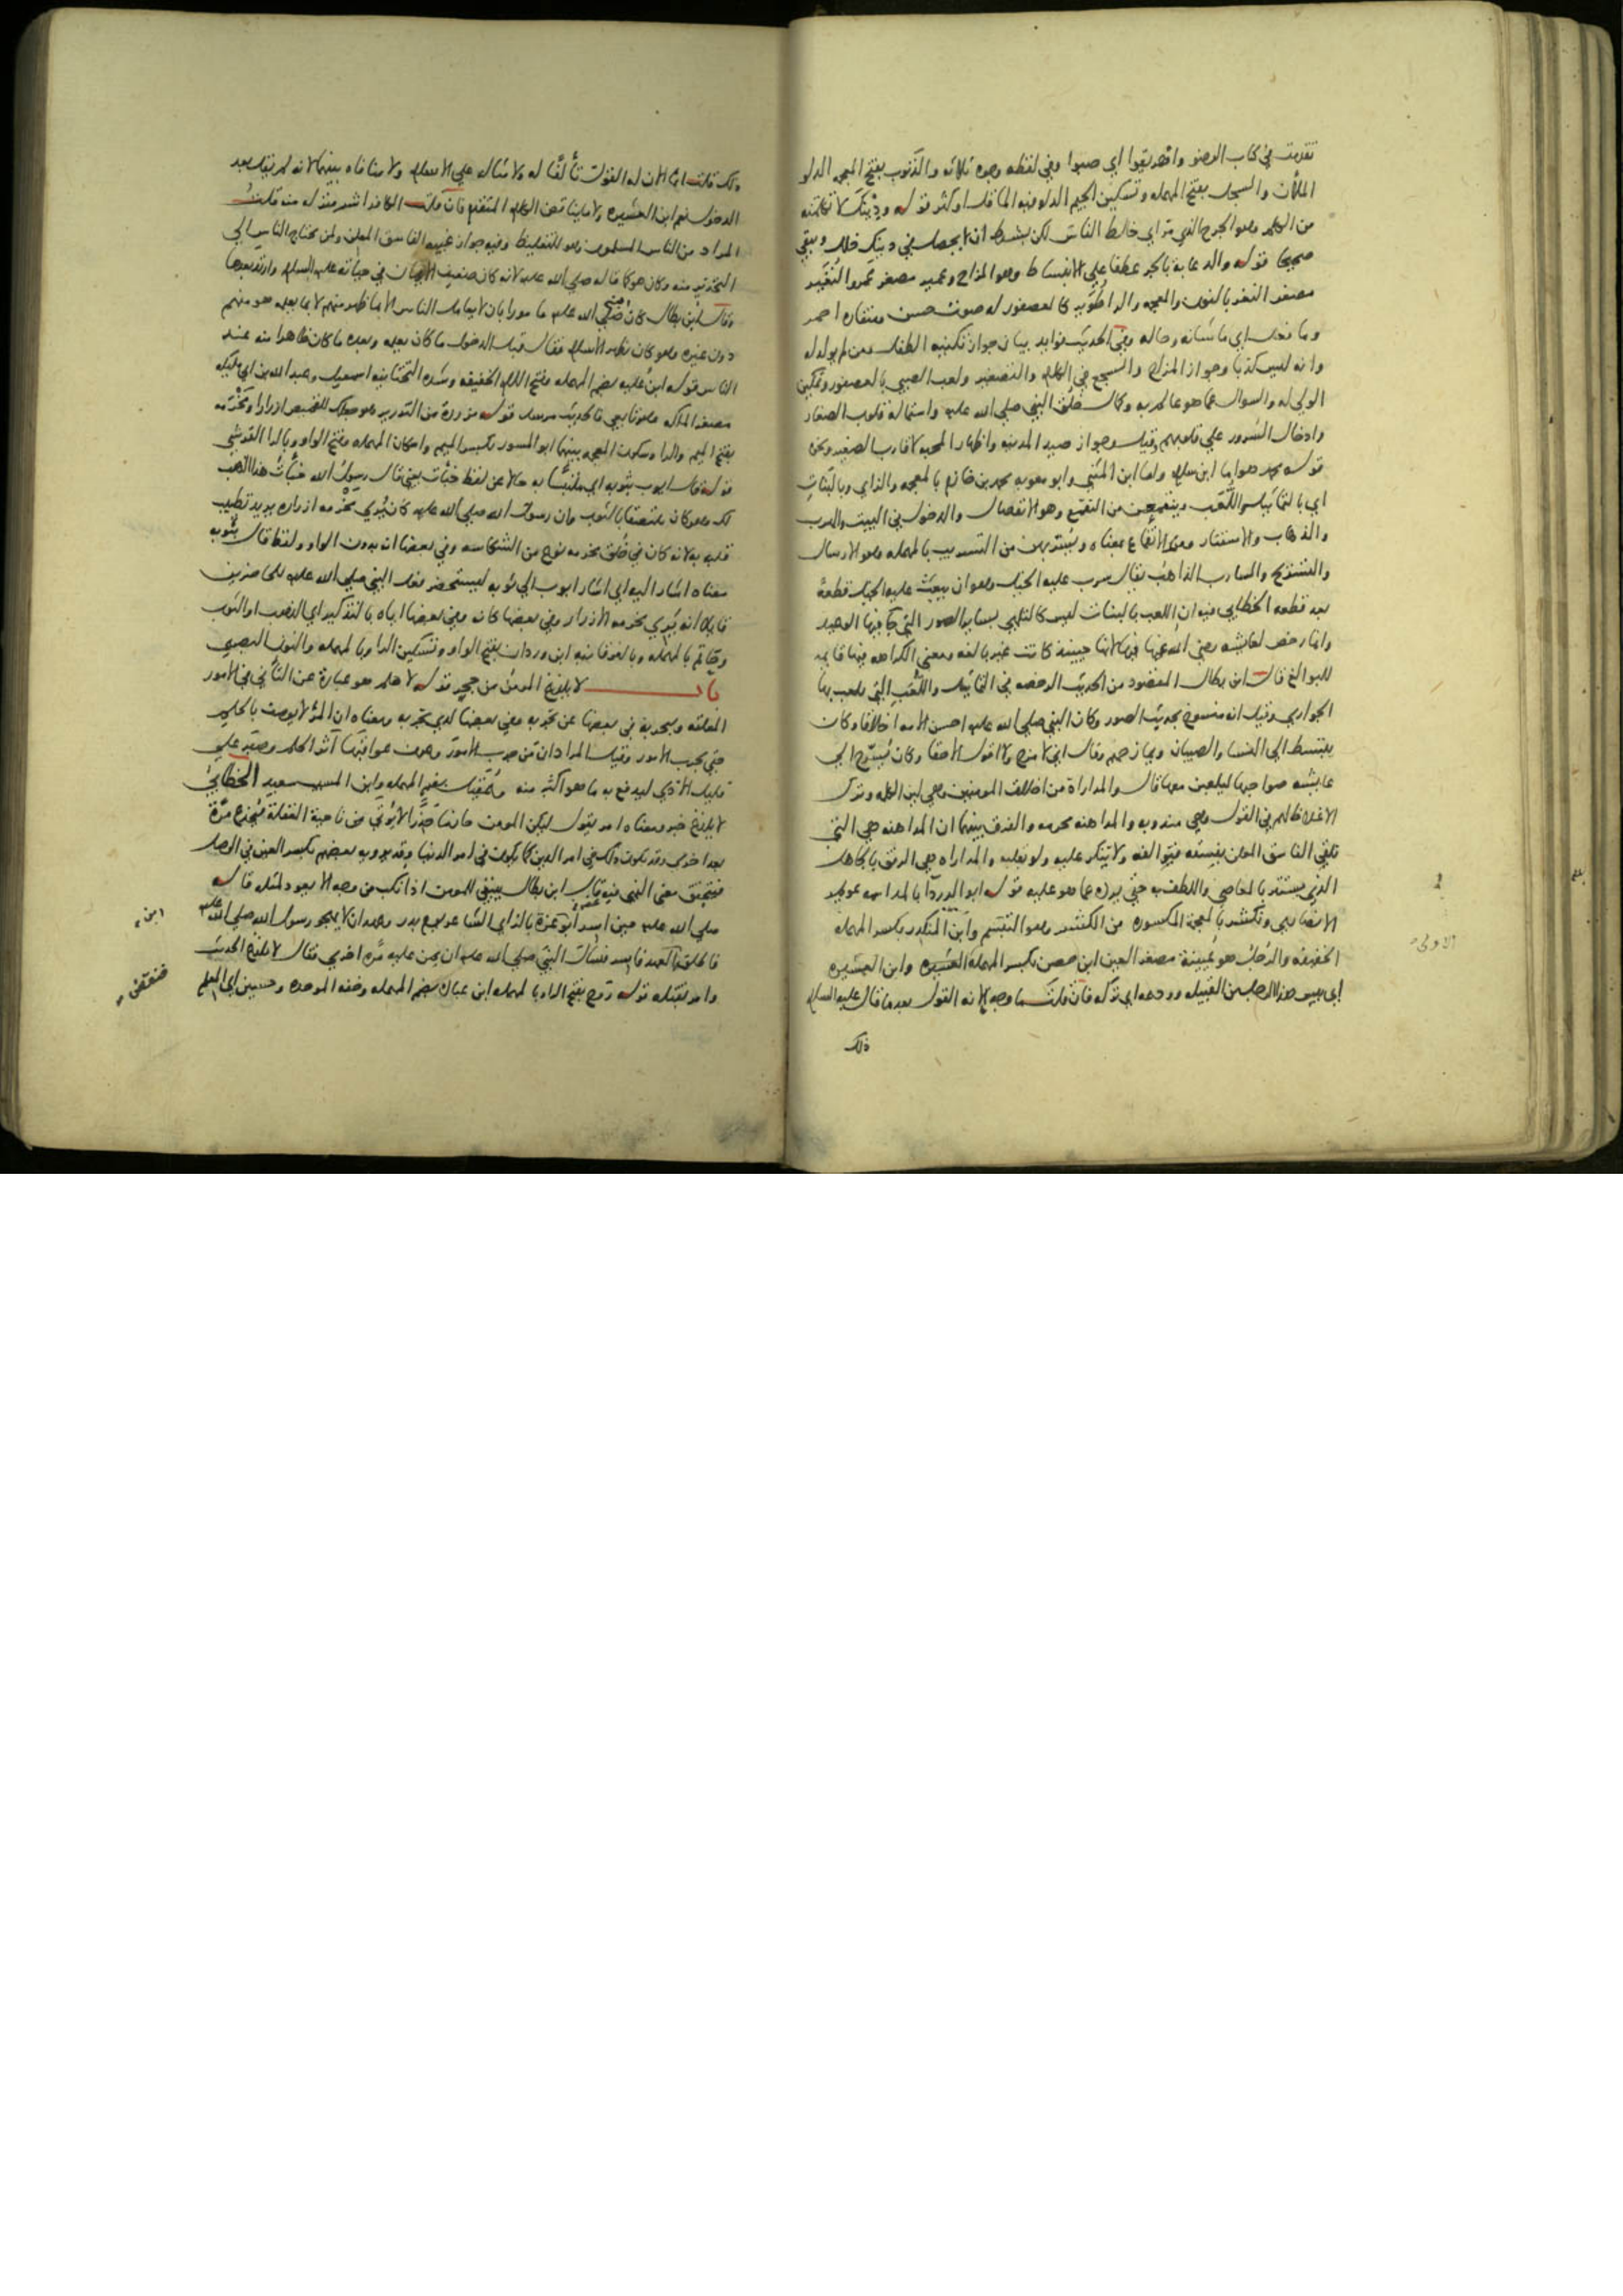 تقدمت في كتاب الوضو واهريقوا اي صبوا وفي لفظه وجوه ثلاثه والذنوب بفتح المعجمه الدلو
الملآن والسجل بفتح المهمله وتسكين الجيم الدلو فيه الما قل او كثر قوله ودينك لا تكلمنه
من الكلم وهو الجرح الذي تراي خالط الناس لكن بشرط ان لا يحصل في دينك خلل ويبقي
صحيحا قوله والدعابة بالجر عطفا علي الانبساط وهو المزاح وعمير مصغر عمرو النغير
مصغر النغر بالنون والمعجمه والرا طوير كالعصفور له صوت حسن ومنقاره احمر
وما فعل اي ما شانه وحاله وفي الحديث فوايد بيان جواز تكنيه الطفل ومن لم يولد له
وانه ليس كذبا وجواز المزاح والسجع في الكلام والتصغير ولعب الصبي بالعصفور وتمكين
الولي له والسوال عما هو عالم به وكمال خلق النبي صلي الله عليه واستمالة قلوب الصغار
وادخال السرور علي قلوبهم وقيل وجواز صيد المدينه واظهار المحبه لاقارب الصغير ونحوه
قوله محمد هو اما ابن سلام واما ابن المثني وابو معويه محمد بن خازم بالمعجمه والزاي وبالبنات
اي بالتماثيل واللعب وينقمعن من التقمع وهو الانفصال والدخول في البيت والهرب
والذهاب والاستتار ومعني الانقماع بمعناه ويسربهن من التسريب بالمهمله وهو الارسال
والتسريح والسارب الذاهب يقال سرب عليه الخيل وهو ان يبعث عليه الخيل قطعة
بعد قطعه الخطابي فيه ان اللعب بالبنات ليس كالتلهي بساير الصور التي جا فيها الوعيد
وانما رخص لعايشه رضي الله عنها فيها لانها حينيذ كانت غير بالغه ومعني الكراهه فيها قايمه
للبوالغ قال ابن بطال المقصود من الحديث الرخصه في التماثيل واللعب التي يلعب بها
الجواري وقيل انه منسوخ بحديث الصور وكان النبي صلي الله عليه احسن الامه اخلاقا وكان
ينبسط الي النسا والصبيان ويمازحهم وقال اني لامزح ولا اقول الا حقا وكان يسرح الي
عايشه صواحبها ليلعبن معها قال والمداراة من اخلاق المومنين وهي لين الكلمه وترك
الاغلاظ لهم في القول وهي مندوبه والمداهنه محرمه والفرق بينهما ان المداهنه هي التي
تلقي الفاسق المعلن بفسقه فيوالفه ولا ينكر عليه ولو بقلبه والمداراه هي الرفق بالجاهل
الذي يستتر بالمعاصي واللطف به حتي يرده عما هو عليه قوله ابو الدردا بالمد اسمه عويمر
الانصاري ونكشر بالمعجمه المكسوره من الكشر وهو التبسم وابن المنكدر بكسر المهمله
الخفيفه والرجل هو عيينة مصغر العين ابن حصن بكسر المهمله العشيره وابن العشيره
اي بيس هذا الرجل من القبيله وودعه اي تركه فان قلت ما وجه الانه القول بعد ما قال عليه السلام
ذلك
ذلك قلت انما الان له القول تألفا له ولامثاله علي الاسلام ولا منافاه بينهما لانه لم يقل بعد
الدخول نعم ابن العشيره ولا ما يناقض الكلام المتقدم فان قلت الكافر اشر منزله منه قلت
المراد من الناس المسلمون وهو للتغليظ وفيه جواز غيبه الفاسق المعلن ولمن يحتاج الناس الي
التحذير منه وكان هو كما قاله صلي الله عليه لانه كان ضعيف الايمان في حياته عليه السلام وارتد بعدها
وقال ابن بطال كان النبي صلي الله عليه مامورا بان لا يعامل الناس الا بما ظهر منهم لا بما يعلمه هو منهم
دون غيره وهو كان يظهر الاسلام فقال قبل الدخول ما كان يعلمه وبعده ما كان ظاهرا منه عند
الناس قوله ابن علية بضم المهمله وفتح اللام الخفيفه وشده التحتانيه اسمعيل وعبد الله بن ابي مليكه
مصغر الملكه وهو تابعي فالحديث مرسل قوله مزررة من التزرير وهو جعلك للقميص ازرارا ومخرمه
بفتح الميم والرا وسكون المعجمه بينهما ابو المسور بكسر الميم واسكان المهمله وفتح الواو وبالرا القرشي
قوله قال ايوب بثوبه اي ملتبسا به حالا عن لفظ خبات يعني قال رسول الله خبأت هذا الثوب
لك وهو كان ملتصقا بالثوب وان رسول الله صلي الله عليه كان يري مخرمه ازراره يريد تطييب
قلبه به لانه كان في خلق مخرمه نوع من الشكاسه وفي بعضها انه بدون الواو ولفظ قال بثوبه
معناه اشار اليه اي اشار ايوب الي ثوبه ليستحضر فعل النبي صلي الله عليه للحاضرين
قايلا انه يري مخرمه الازرار وفي بعضها كانه وفي بعضها اياه بالتذكير اي الذهب او الثوب
وحاتم بالمهمله وبالفوقانيه ابن وردان بفتح الواو وتسكين الرا وبالمهمله والنون البصري
باب لا يلدغ المومن من جحر قوله لا حلم هو عبارة عن التأني في الامور
المقلقه وبتجربه في بعضها عن تجربه وفي بعضها لذي تجربه ومعناه ان المرؤ لا يوصف بالحلم
حتي يجرب الامور وقيل المراد ان من جرب الامور وعرف عواقبها آثر الحلم وصبر علي
قليل الاذي ليدفع به ما هو اكثر منه وعقيل بضم المهمله وابن المسيب سعيد الخطابي
لا يلدغ خبر ومعناه امر يقول ليكن المومن حازما حذرا لا يؤتي من ناحية الغفلة فيخدع مرة
بعد اخري وقد يكون ذلك في امر الدين كما يكون في امر الدنيا وقد يرويه بعضهم بكسر الغين في الوصل
فيتحقق معني النهي فيه قال ابن بطال ينبغي للمومن اذا نكب من وجه الا يعود لمثله قاله
صلي الله عليه حين اسر ابو عزة بالزاي الشاعر يوم بدر وعهد ان لا يهجو رسول الله صلي الله عليه
فاطلق فنقض العهد فاسر فسأل النبي صلي الله عليه ان يمن عليه مره اخري فقال لا يلدغ الحديث
وامر بقتله قوله روح بفتح الرا وبالمهمله ابن عبادة بضم المهمله وخفه الموحده وحسين اي المعلم
ابن
فنقض
الاولي